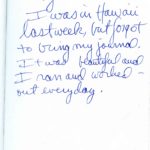 I was in Hawaii
last week, but forgot
to bring my journal.
It was beautiful and
I ran and worked -
out everyday.